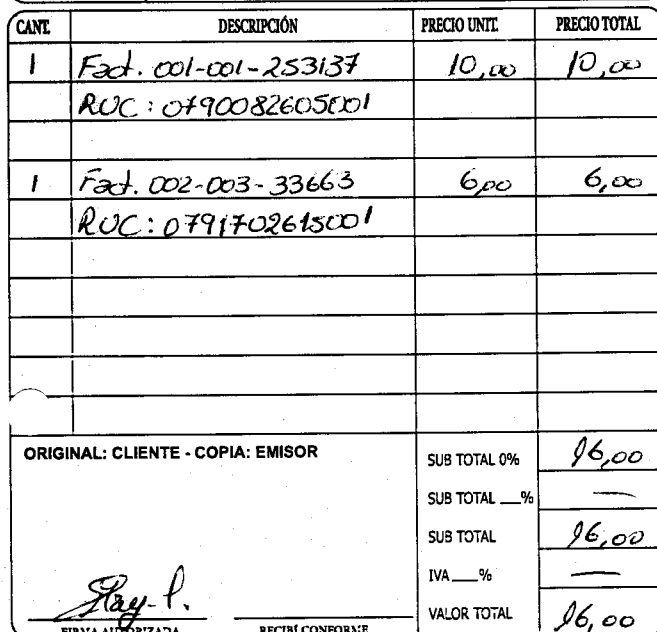 CANT. DESCRIPCIÓN PRECIO UNIT. PRECIO TOTAL
1 Fact. 001-001-253137 10,00 10,00
RUC: 0790082605001
1 Fact. 002-003-33663 6,00 6,00
RUC: 0791702615001
ORIGINAL: CLIENTE - COPIA: EMISOR
SUB TOTAL 0% 16,00
SUB TOTAL __% —
SUB TOTAL 16,00
IVA __% —
VALOR TOTAL 16,00
FIRMA AUTORIZADA RECIBÍ CONFORME